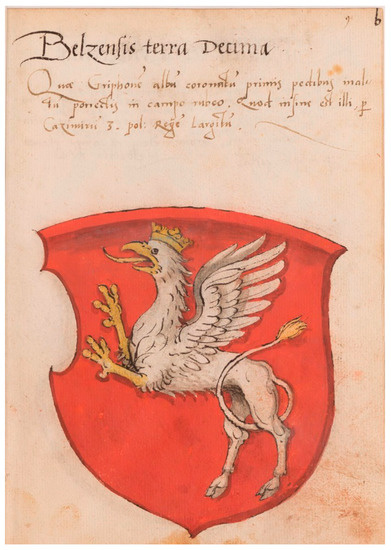 9 b
Belzensis terra Decima
Quæ Griphonē albū coronatū primis pedibus mul
tū porrectis in campo Quod insigne est illi ꝑ
Cazimirū 3. pol: Regē Largitū.